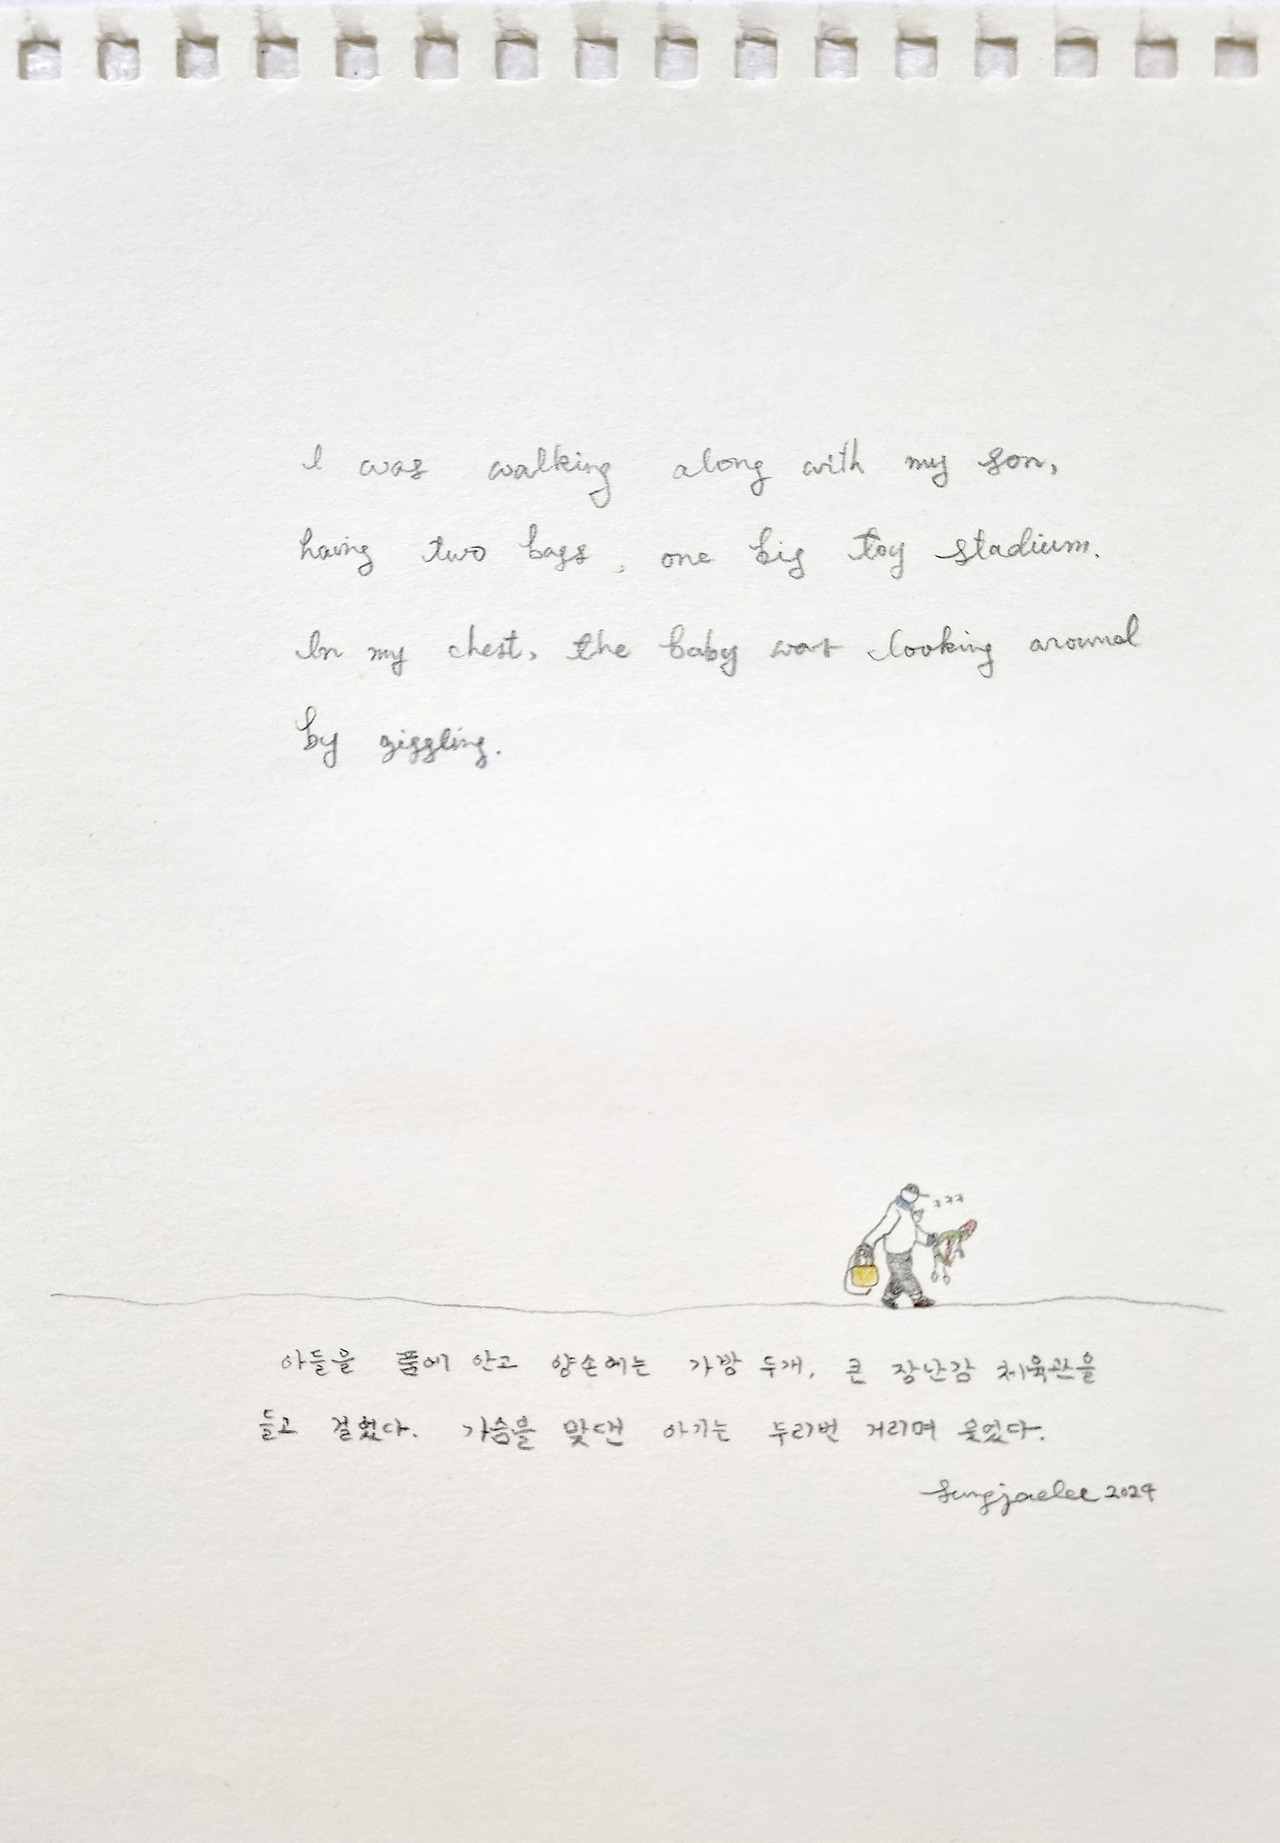 I was walking along with my son,
having two bags, one big toy stadium.
In my chest, the baby was looking around
by giggling.
ㅋㅋㅋ
아들을 품에 안고 양손에는 가방 두개, 큰 장난감 체육관을
들고 걸었다. 가슴을 맞댄 아기는 두리번 거리며 웃었다.
sungjaelee 2024